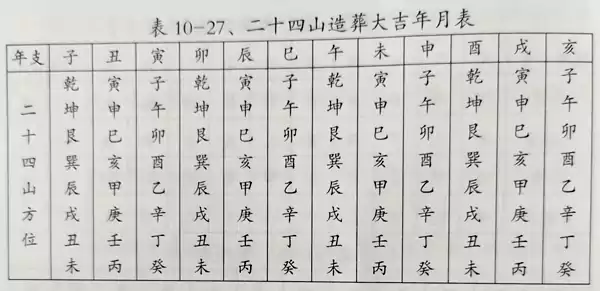 表 10-27、二十四山造葬大吉年月表
年支 子 丑 寅 卯 辰 巳 午 未 申 酉 戌 亥
乾 寅 子 乾 寅 子 乾 寅 子 乾 寅 子
二 坤 申 午 坤 申 午 坤 申 午 坤 申 午
十 艮 巳 卯 艮 巳 卯 艮 巳 卯 艮 巳 卯
四 巽 亥 酉 巽 亥 酉 巽 亥 酉 巽 亥 酉
山 辰 甲 乙 辰 甲 乙 辰 甲 乙 辰 甲 乙
方 戌 庚 辛 戌 庚 辛 戌 庚 辛 戌 庚 辛
位 丑 壬 丁 丑 壬 丁 丑 壬 丁 丑 壬 丁
未 丙 癸 未 丙 癸 未 丙 癸 未 丙 癸